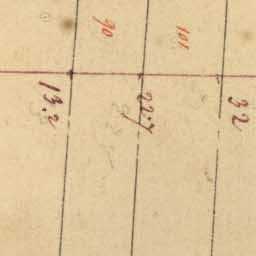 90
101
13.2
22.7
32